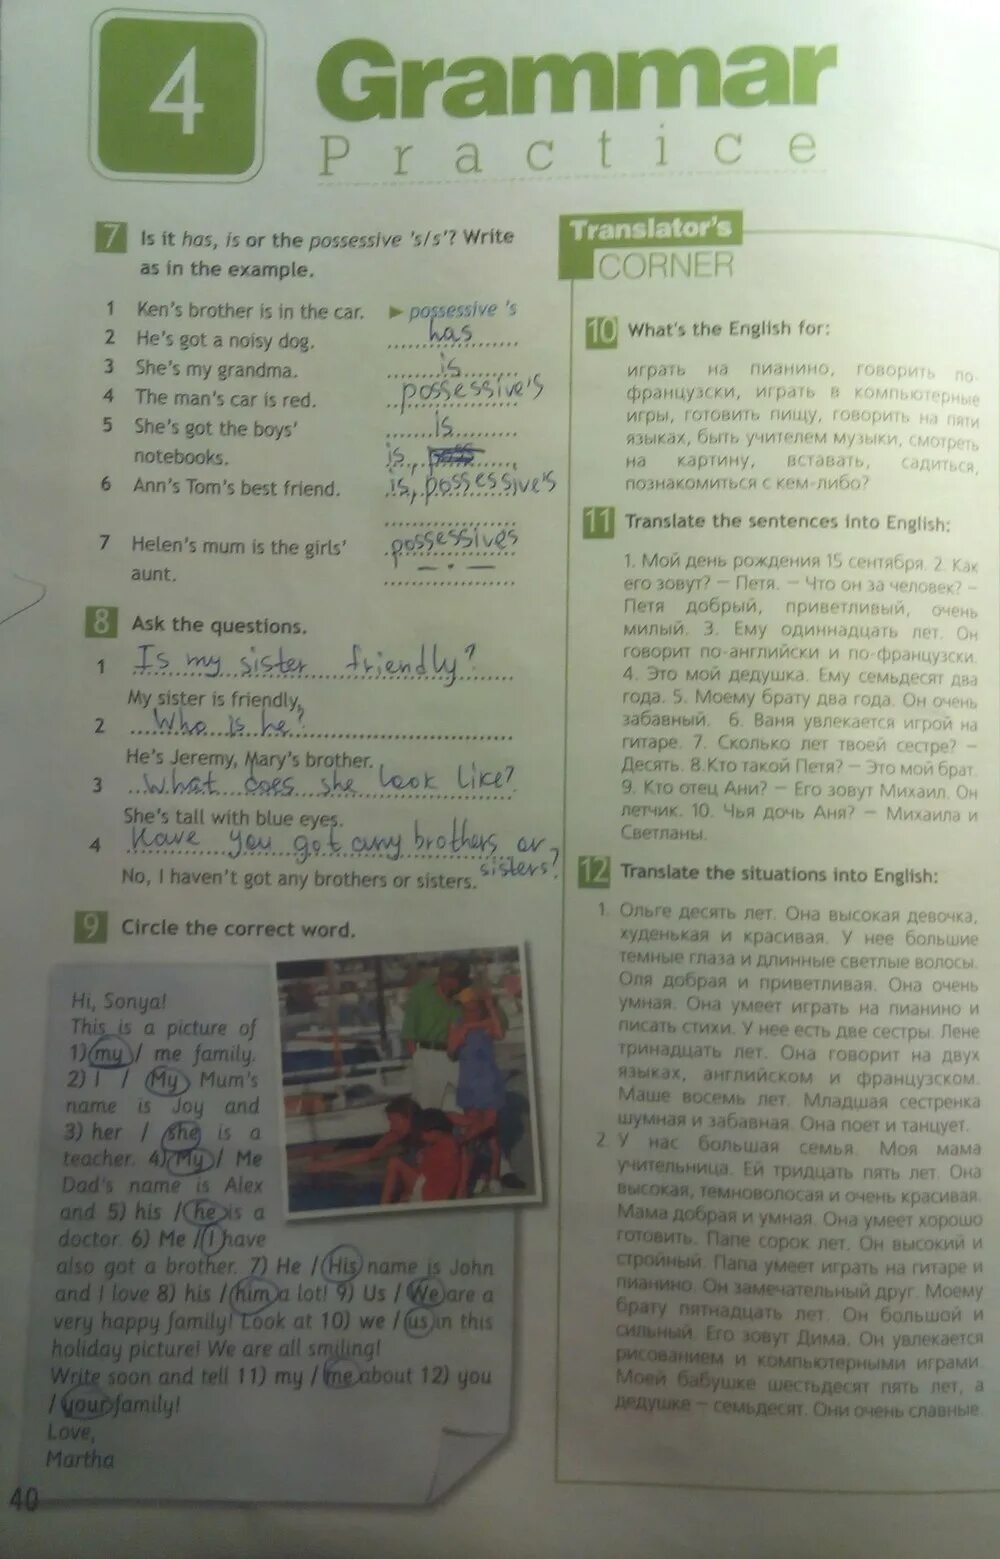 4
Grammar
Practice
7 Is it has, is or the possessive 's/s'? Write
as in the example.
1 Ken's brother is in the car. ► possessive 's
2 He's got a noisy dog. has
3 She's my grandma. is
4 The man's car is red. possessive's
5 She's got the boys' is
notebooks. is,
6 Ann's Tom's best friend. is, possessive's
7 Helen's mum is the girls' possessives
aunt. – . –
8 Ask the questions.
1 Is my sister friendly?
My sister is friendly,
2 Who is he?
He's Jeremy, Mary's brother.
3 What does she look like?
She's tall with blue eyes.
4 Have you got any brothers or
sisters?
No, I haven't got any brothers or sisters.
9 Circle the correct word.
Hi, Sonya!
This is a picture of
1) my / me family.
2) I / My Mum's
name is Joy and
3) her / she is a
teacher. 4) My / Me
Dad's name is Alex
and 5) his / he is a
doctor. 6) Me / I have
also got a brother. 7) He / His name is John
and I love 8) his / him a lot! 9) Us / We are a
very happy family! Look at 10) we / us in this
holiday picture! We are all smiling!
Write soon and tell 11) my / me about 12) you
/ your family!
Love,
Martha
40
Translator's
CORNER
10 What's the English for:
играть на пианино, говорить по-
французски, играть в компьютерные
игры, готовить пищу, говорить на пяти
языках, быть учителем музыки, смотреть
на картину, вставать, садиться,
познакомиться с кем-либо?
11 Translate the sentences into English:
1. Мой день рождения 15 сентября. 2. Как
его зовут? – Петя. – Что он за человек? –
Петя добрый, приветливый, очень
милый. 3. Ему одиннадцать лет. Он
говорит по-английски и по-французски.
4. Это мой дедушка. Ему семьдесят два
года. 5. Моему брату два года. Он очень
забавный. 6. Ваня увлекается игрой на
гитаре. 7. Сколько лет твоей сестре? –
Десять. 8.Кто такой Петя? – Это мой брат.
9. Кто отец Ани? – Его зовут Михаил. Он
летчик. 10. Чья дочь Аня? – Михаила и
Светланы.
12 Translate the situations into English:
1. Ольге десять лет. Она высокая девочка,
худенькая и красивая. У нее большие
темные глаза и длинные светлые волосы.
Оля добрая и приветливая. Она очень
умная. Она умеет играть на пианино и
писать стихи. У нее есть две сестры. Лене
тринадцать лет. Она говорит на двух
языках, английском и французском.
Маше восемь лет. Младшая сестренка
шумная и забавная. Она поет и танцует.
2. У нас большая семья. Моя мама
учительница. Ей тридцать пять лет. Она
высокая, темноволосая и очень красивая.
Мама добрая и умная. Она умеет хорошо
готовить. Папе сорок лет. Он высокий и
стройный. Папа умеет играть на гитаре и
пианино. Он замечательный друг. Моему
брату пятнадцать лет. Он большой и
сильный. Его зовут Дима. Он увлекается
рисованием и компьютерными играми.
Моей бабушке шестьдесят пять лет, а
дедушке – семьдесят. Они очень славные.